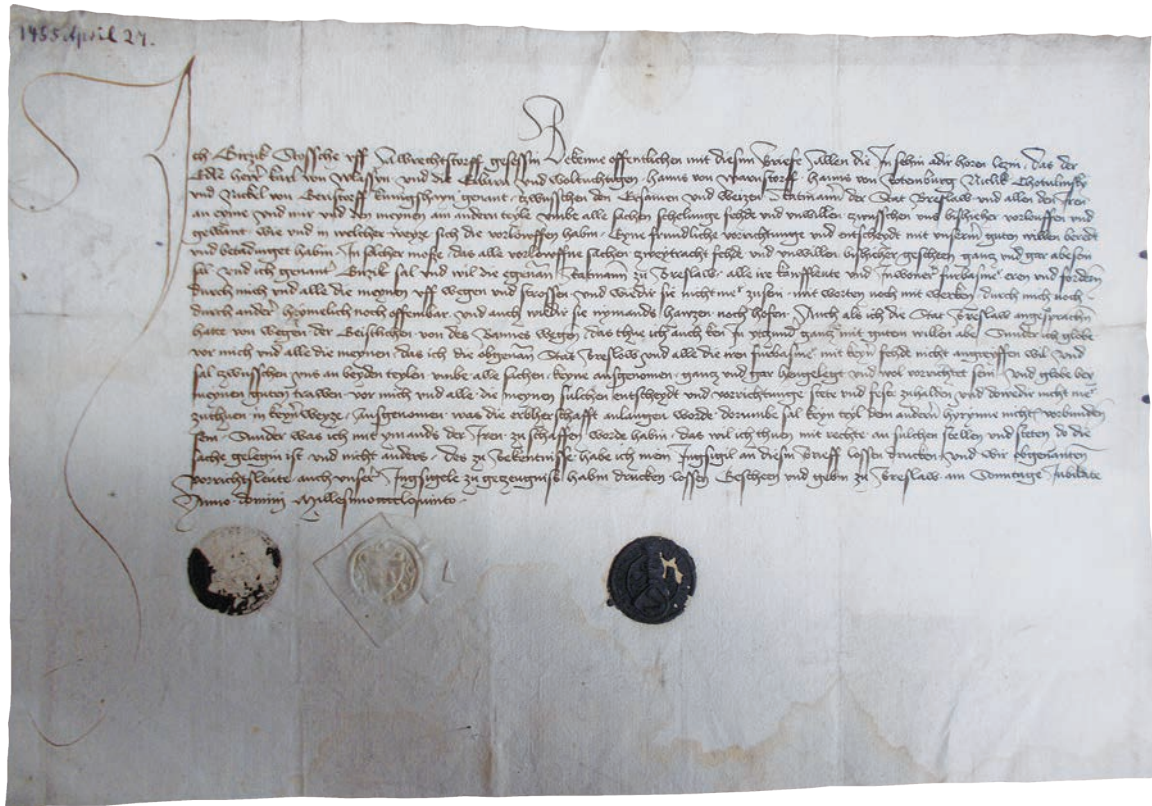 1455 April 27.
Ich Girzik Stossche uff Albrechtstorff gesessin Bekenne offentlichen mit diesim Briefe Allen die In sehin adir horen lezin, das der
Edle herre karl von Wlassin und die Erbarn und Woltuchtigen, Hanns von Warnstorff, Hanns von Rotemburg, Niclik Chotulinsky
und Nickel von Gerstorff kuningshayn genant, czwusschen den Ersamen und Weizen Ratmann der Stat Breslaw und allen den Iren
an eyme und mir und den meynen am andern teyle umbe alle sachen schelunge fehde und unwillen zwusschen uns bisher vorlouffen und
gewant, wie und in welcher weyze sich die vorlouffen habin, Eyne frundliche vorrichtunge und entscheydt mit unserm guten willen beredt
und betadinget habin, In solcher mosse, das alle vorlouffne sachen zweytracht fehde und unwillen bisher gescheen gancz und gar abe sein
sal und ich genant Girzik sal und wil die egenan Ratmann zu Breslaw, alle ire kouffleute und Inwoner furbasme eren und fordern
durch mich und alle die meynen uff wegen und strossen, und wedir sie nicht me zusein mit worten noch mit wercken, durch mich noch
durch ander heymelich noch offenbar und auch wedir sie nymands hawzen noch hofen Auch als ich die Stat Breslaw angesprochen
hatte von wegen der Geistlichen von des Bannes wegen, das thue ich auch ken In gancz mit guten willen abe Sunder ich globe
vor mich und alle die meynen, das ich die obgenan Stat Breslaw und alle die iren furbasme mit keyn fehde nicht angreyffen wil und
sal zwusschen uns an beyden teylen umbe alle sachen, keyne ausgenomen, gancz und gar hengelegt und wol vorrichtet sein, und globe bey
meynen guten trawen vor mich und alle die meynen sulchen entscheydt und vorrichtunge stete und feste zuhalden und dowedir nicht me
zuthuen in keyn weyze, Ausgenomen was die erbherschafft anlangen worde, dorumbe sal keyn teyl dem andern hyrynne nicht vorbunden
sein, Sunder was ich mit ymands der Iren zu schaffen worde habin, das wil ich thuen mit rechte an sulchen stellen und steten do die
sache gelegin ist und nicht anders, des zu Bekentnisse habe ich mein Ingsigil an diesin Brieff lossen drucken, und wir obgenanten
vorrichtsleute auch unser Ingsigele zu geczeugniss habin drucken lossen Gescheen und gebin zu Breslaw am Sonntage Jubilate
Anno domini Millesimo